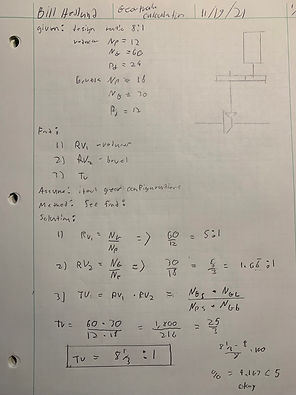 Bill Hedlund
Gear train calculation
11/19/21
given: design ratio 8:1
Np = 12
NG = 60
Pd = 24
Bevels Np = 18
NG = 30
Pd = 12
Find:
1) RV1
2) RV2 - bevel
3) TV
Assume: ideal gear configurations
Method: See find:
Solution:
1) RV1 = NG/Np => 60/12 = 5:1
2) RV2 = NG/Np => 30/18 = 5/3 = 1.66 :1
3) TV = RV1 · RV2 =
TV = 60 · 30 / 12 · 18 = 1,800/216 = 25/3
TV = 8 1/3 :1
8 1/3 - 8 / 8 · 100
% = 4.167 < 5
okay